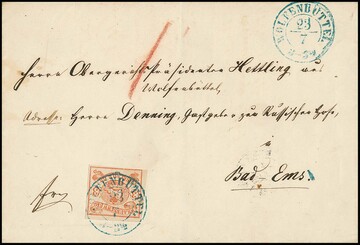 WOLFENBÜTTEL
23
7
Herrn Obergerichtspräsidenten Hettling aus
Wolfenbüttel,
Adresse: Herrn Denning, Gastgeber zum Russischen Hofe,
in
Bad Ems.
frei
WOLFENBÜTTEL